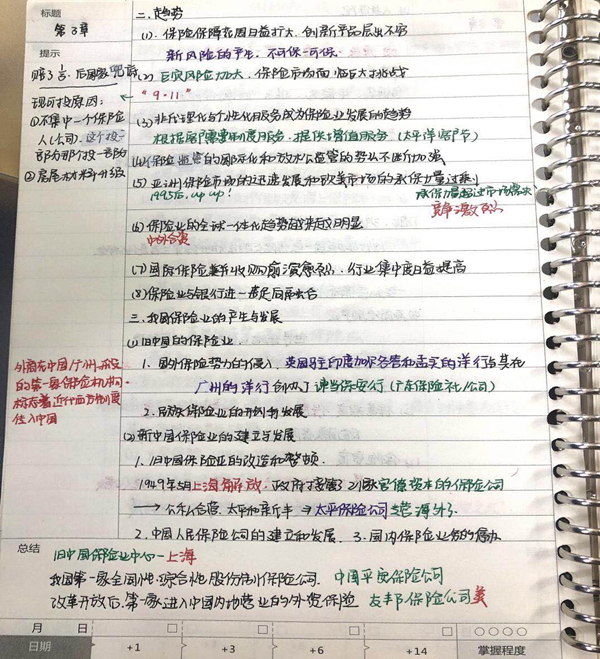 标题
第3章
提示
现可投原因：
①不集中一个保险
人(公司)，这个投一
部分那个投一部分
②房屋材料升级
外商在中国广州开设
的第一家保险机构，
标志着近代西方制度
传入中国
二、趋势
(1). 保险保障范围日益扩大，创新产品层出不穷
新风险的产生，不可保→可保
(2) 巨灾风险加大，保险市场面临巨大挑战
← "9·11"
(3) 与个性化服务成为保险业发展的趋势
根据客户需要制度服务，提供增值服务（太平洋客户节）
(4) 保险监管的国际化和放松监管的势头不断加强
(5) 亚洲保险市场的迅速发展和欧美市场的承保力量过剩
1995后，up up！
承保力量超过市场需求
竞争激烈
(6) 保险业的全球一体化趋势越来越明显
中外合资
(7) 国际保险兼并收购愈演愈烈，行业集中度日益提高
(8) 保险业与银行进一步走向融合
三、我国保险业的产生与发展
(1) 旧中国的保险业
1. 国外保险势力的侵入，英国驻印度加尔各答和孟买的洋行与其在
广州的洋行 创办了 谏当保安行（广东保险社/公司）
2. 民族保险业的开创与发展
(2) 新中国保险业的建立与发展
1. 旧中国保险业的改造和整顿.
1949年5月上海解放，政府接管了21家官僚资本的保险公司
→ 公私合营，太平和新丰 ⇒ 太平保险公司 专营海外了.
2. 中国人民保险公司的建立和发展. 3. 国内保险业务的停办
总结
旧中国保险业中心—上海
我国第一家全国性、综合性股份制保险公司. 中国平安保险公司
改革开放后第一家进入中国内地营业的外资保险 友邦保险公司 美
月 日
日期
+1
+3
+6
+14
掌握程度